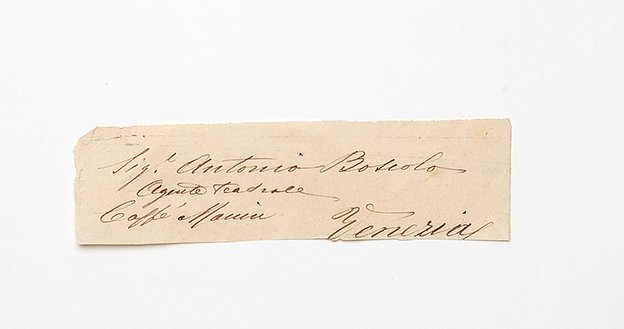 Sig.r Antonio Boscolo
Agente Teatrale
Caffé Manin
Venezia